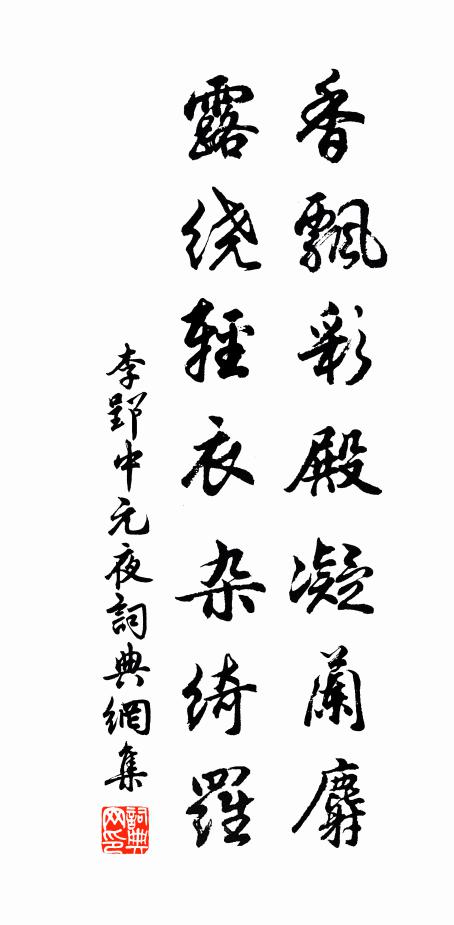 香飄彩殿凝蘭麝
露绕輕衣杂绮羅
李郢中元夜詞典網集
詞典网印